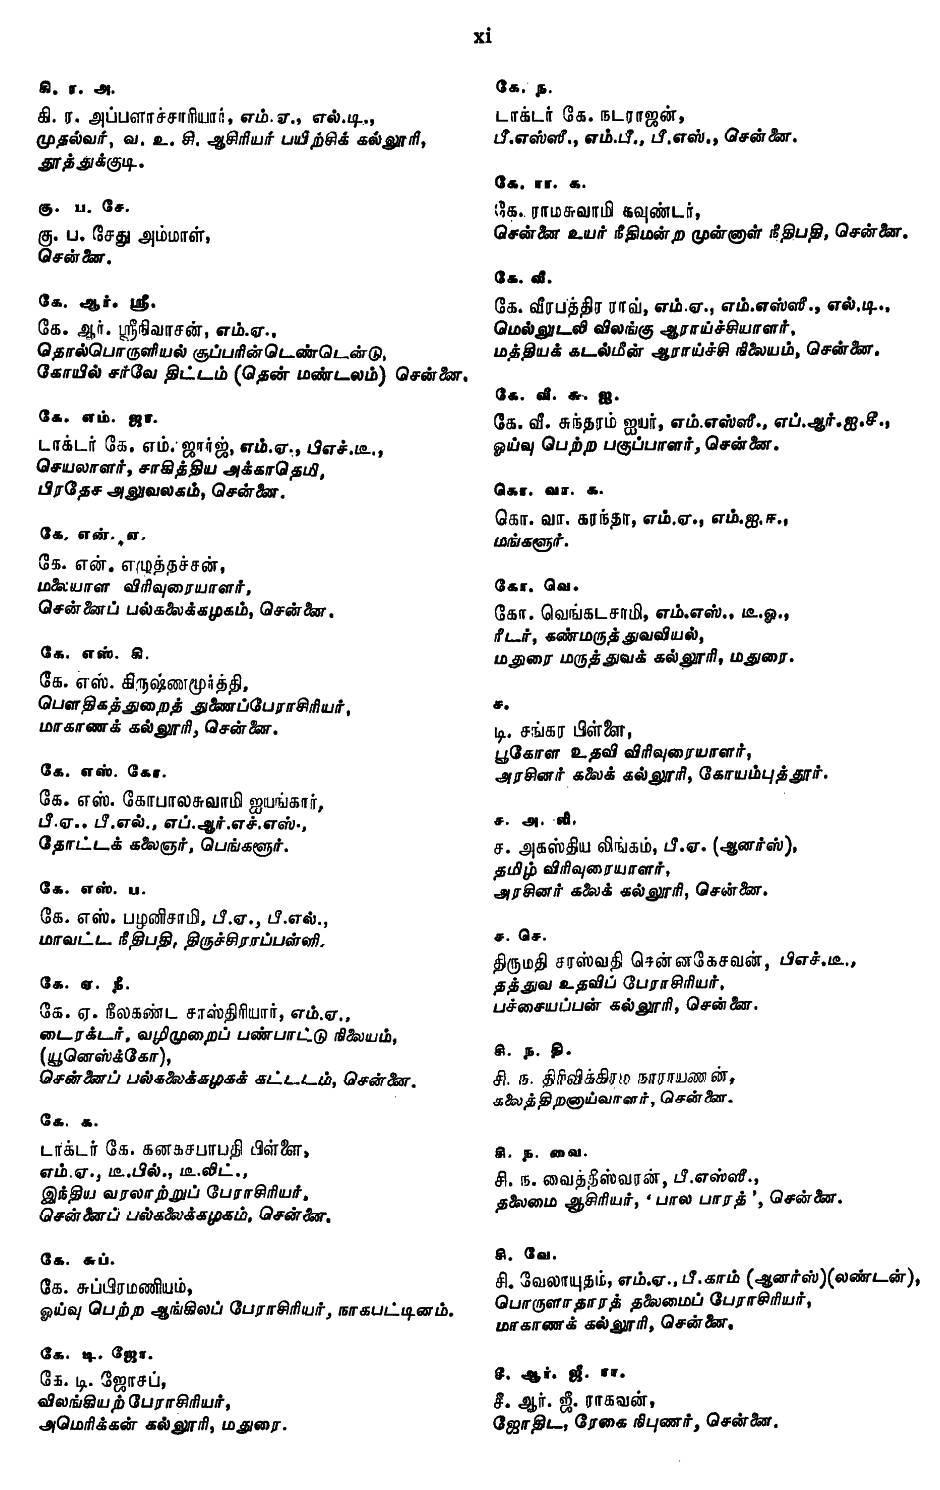 xi
கி. ர. அ.
கி. ர. அப்பளாச்சாரியார், எம்.ஏ., எல்.டி.,
முதல்வர், வ. உ. சி. ஆசிரியர் பயிற்சிக் கல்லூரி,
தூத்துக்குடி.
கு. ப. சே.
கு. ப. சேது அம்மாள்,
சென்னை.
கே. ஆர். ஸ்ரீ.
கே. ஆர். ஸ்ரீநிவாசன், எம்.ஏ.,
தொல்பொருளியல் சூப்பரின்டெண்டென்டு,
கோயில் சர்வே திட்டம் (தென் மண்டலம்) சென்னை.
கே. எம். ஜா.
டாக்டர் கே. எம். ஜார்ஜ், எம்.ஏ., பிஎச்.டீ.,
செயலாளர், சாகித்திய அக்காதெமி,
பிரதேச அலுவலகம், சென்னை.
கே. என். எ.
கே. என். எழுத்தச்சன்,
மலையாள விரிவுரையாளர்,
சென்னைப் பல்கலைக்கழகம், சென்னை.
கே. எஸ். கி.
கே. எஸ். கிருஷ்ணமூர்த்தி,
பௌதிகத்துறைத் துணைப்பேராசிரியர்,
மாகாணக் கல்லூரி, சென்னை.
கே. எஸ். கோ.
கே. எஸ். கோபாலசுவாமி ஐயங்கார்,
பீ.ஏ.. பீ.எல்., எப்.ஆர்.எச்.எஸ்.,
தோட்டக் கலைஞர், பெங்களூர்.
கே. எஸ். ப.
கே. எஸ். பழனிசாமி, பீ.ஏ., பீ.எல்.,
மாவட்ட நீதிபதி, திருச்சிராப்பள்ளி.
கே. ஏ. நீ.
கே. ஏ. நீலகண்ட சாஸ்திரியார், எம்.ஏ.,
டைரக்டர், வழிமுறைப் பண்பாட்டு நிலையம்,
(யூனெஸ்க்கோ),
சென்னைப் பல்கலைக்கழகக் கட்டடம், சென்னை.
கே. க.
டாக்டர் கே. கனகசபாபதி பிள்ளை,
எம்.ஏ., டீ.பில்., டீ.லிட்.,
இந்திய வரலாற்றுப் பேராசிரியர்,
சென்னைப் பல்கலைக்கழகம், சென்னை.
கே. சுப்.
கே. சுப்பிரமணியம்,
ஓய்வு பெற்ற ஆங்கிலப் பேராசிரியர், நாகபட்டினம்.
கே. டி. ஜோ.
கே. டி. ஜோசப்,
விலங்கியற் பேராசிரியர்,
அமெரிக்கன் கல்லூரி, மதுரை.
கே. ந.
டாக்டர் கே. நடராஜன்,
பீ.எஸ்ஸீ., எம்.பீ., பீ.எஸ்., சென்னை.
கே. ரா. க.
கே. ராமசுவாமி கவுண்டர்,
சென்னை உயர் நீதிமன்ற முன்னாள் நீதிபதி, சென்னை.
கே. வீ.
கே. வீரபத்திர ராவ், எம்.ஏ., எம்.எஸ்ஸீ., எல்.டி.,
மெல்லுடலி விலங்கு ஆராய்ச்சியாளர்,
மத்தியக் கடல்மீன் ஆராய்ச்சி நிலையம், சென்னை.
கே. வீ. சு. ஐ.
கே. வீ. சுந்தரம் ஐயர், எம்.எஸ்ஸீ., எப்.ஆர்.ஐ.சீ.,
ஓய்வு பெற்ற பகுப்பாளர், சென்னை.
கொ. வா. க.
கொ. வா. கரந்தா, எம்.ஏ., எம்.ஐ.ஈ.,
மங்களூர்.
கோ. வெ.
கோ. வெங்கடசாமி, எம்.எஸ்., டீ.ஓ.,
ரீடர், கண்மருத்துவவியல்,
மதுரை மருத்துவக் கல்லூரி, மதுரை.
ச.
டி. சங்கர பிள்ளை,
பூகோள உதவி விரிவுரையாளர்,
அரசினர் கலைக் கல்லூரி, கோயம்புத்தூர்.
ச. அ. லி.
ச. அகஸ்திய லிங்கம், பீ.ஏ. (ஆனர்ஸ்),
தமிழ் விரிவுரையாளர்,
அரசினர் கலைக் கல்லூரி, சென்னை.
ச. செ.
திருமதி சரஸ்வதி சென்னகேசவன், பிஎச்.டீ.,
தத்துவ உதவிப் பேராசிரியர்,
பச்சையப்பன் கல்லூரி, சென்னை.
சி. ந. தி.
சி. ந. திரிவிக்கிரம நாராயணன்,
கலைத்திறனாய்வாளர், சென்னை.
சி. ந. வை.
சி. ந. வைத்தீஸ்வரன், பீ.எஸ்ஸீ.,
தலைமை ஆசிரியர், ‘ பால பாரத் ’, சென்னை.
சி. வே.
சி. வேலாயுதம், எம்.ஏ., பீ.காம் (ஆனர்ஸ்)(லண்டன்),
பொருளாதாரத் தலைமைப் பேராசிரியர்,
மாகாணக் கல்லூரி, சென்னை.
சீ. ஆர். ஜீ. ரா.
சீ. ஆர். ஜீ. ராகவன்,
ஜோதிட, ரேகை நிபுணர், சென்னை.